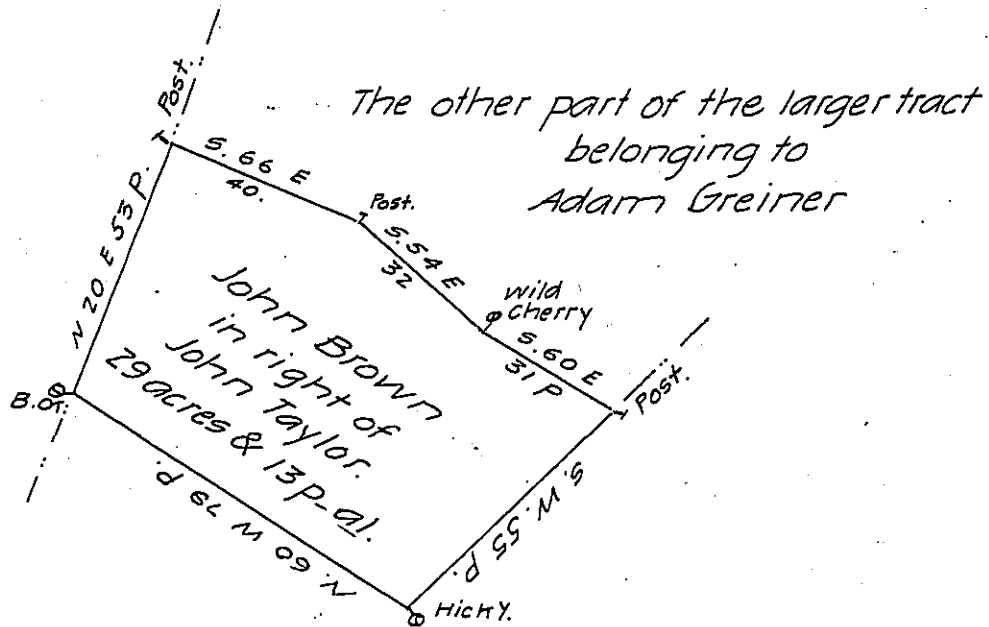 Post.
The other part of the larger tract
belonging to
Adam Greiner
S. 66 E
40.
Post.
S. 54 E
32
wild
cherry
S. 60 E
31 P
Post.
N 20 E 53 P.
John Brown
in right of
John Taylor.
29 acres & 13 P-al.
B.O.
N. 60 W 79 P.
S. W. 55 P.
HICKY.